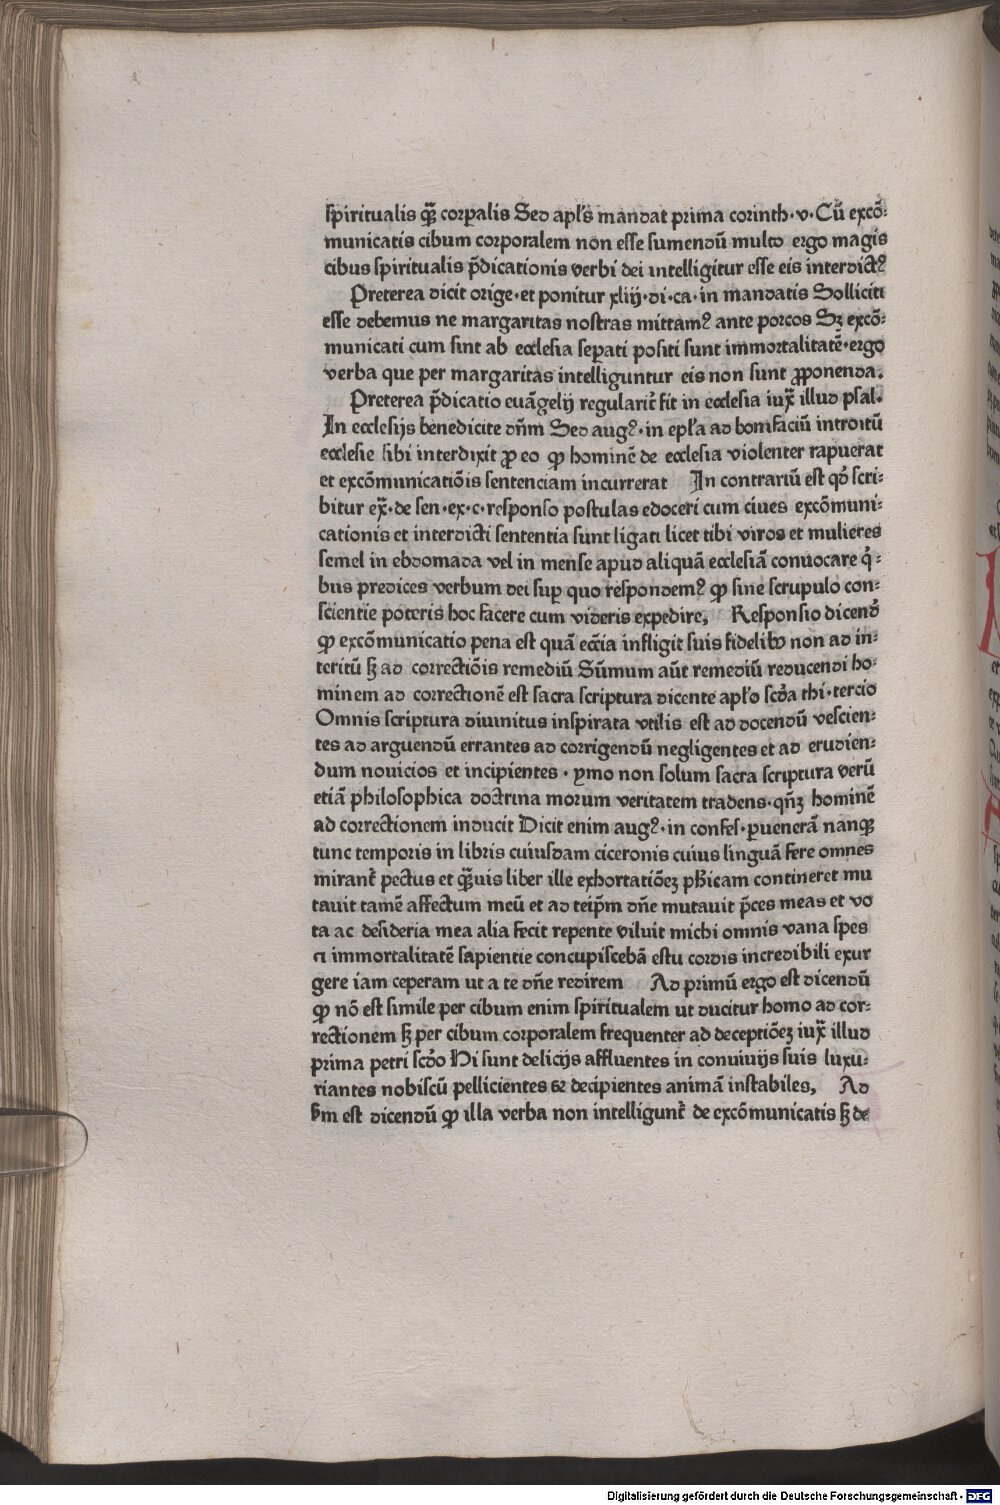 spiritualis qᷓꝫ corꝑalis Sed apl̓s mandat prima corinth·v·Cū excō⸗
municatis cibum corporalem non esse sumendū multo ergo magis
cibus spiritualis p̄dicationis verbi dei intelligitur esse eis interdictꝰ
Preterea dicit orige·et ponitur xliij·di·ca·in mandatis Solliciti
esse debemus ne margaritas nostras mittamꝰ ante porcos Sꝫ excō⸗
municati cum sint ab ecclesia seꝑati positi sunt immortalitatē·ergo
verba que per margaritas intelliguntur eis non sunt ꝓponenda.
Preterea p̄dicatio euāgelij regularit̄ fit in ecclesia iux̄ illud psal.
In ecclesijs benedicite dn̄m Sed augꝰ·in epl̓a ad bonifaciū introitū
ecclesie sibi interdixit ꝓ eo ꝙ hominē de ecclesia violenter rapuerat
et excōmunicatiōis sentenciam incurrerat In contrariū est qd̓ scri⸗
bitur ex̄·de sen·ex·c·responso postulas edoceri cum ciues excōmuni⸗
cationis et interdicti sententia sunt ligati licet tibi viros et mulieres
semel in ebdomada vel in mense apud aliquā ecclesiā conuocare q̓⸗
bus predices verbum dei suꝑ quo respondemꝰ ꝙ sine scrupulo con⸗
scientie poteris hoc facere cum videris expedire, Responsio dicend̓
ꝙ excōmunicatio pena est quā ecc̄ia infligit suis fidelibꝰ non ad in⸗
teritū sꝫ ad correctiōis remediū Sūmum aūt remediū reducendi ho⸗
minem ad correctionē est sacra scriptura dicente apl̓o scd̓a thi·tercio
Omnis scriptura diuinitus inspirata vtilis est ad docendū vescien⸗
tes ad arguendū errantes ad corrigendū negligentes et ad erudien⸗
dum nouicios et incipientes · ymo non solum sacra scriptura verū
etiā philosophica doctrina morum veritatem tradens·qn̄ꝫ hominē
ad correctionem inducit Dicit enim augꝰ·in confes·ꝑuenerā nanqꝫ
tunc temporis in libris cuiusdam ciceronis cuius linguā fere omnes
mirant̄ pectus et qᷓꝫuis liber ille exhortatiōeꝫ ph̄icam contineret mu
tauit tamē affectum meū et ad teip̄m dn̄e mutauit p̄ces meas et vo
ta ac desideria mea alia fecit repente viluit michi omnis vana spes
et immortalitatē sapientie concupiscebā estu cordis incredibili exur
gere iam ceperam ut a te dn̄e redirem Ad primū ergo est dicendū
ꝙ nō est simile per cibum enim spiritualem ut ducitur homo ad cor⸗
rectionem sꝫ per cibum corporalem frequenter ad deceptiōeꝫ iux̄ illud
prima petri scd̓o Hi sunt delicijs affluentes in conuiuijs suis luxu⸗
riantes nobiscū pellicientes ⁊ decipientes animā instabiles, Ad
ẜm est dicendū ꝙ illa verba non intelligunt̄ de excōmunicatis sꝫ de
Digitalisierung gefördert durch die Deutsche Forschungsgemeinschaft - DFG